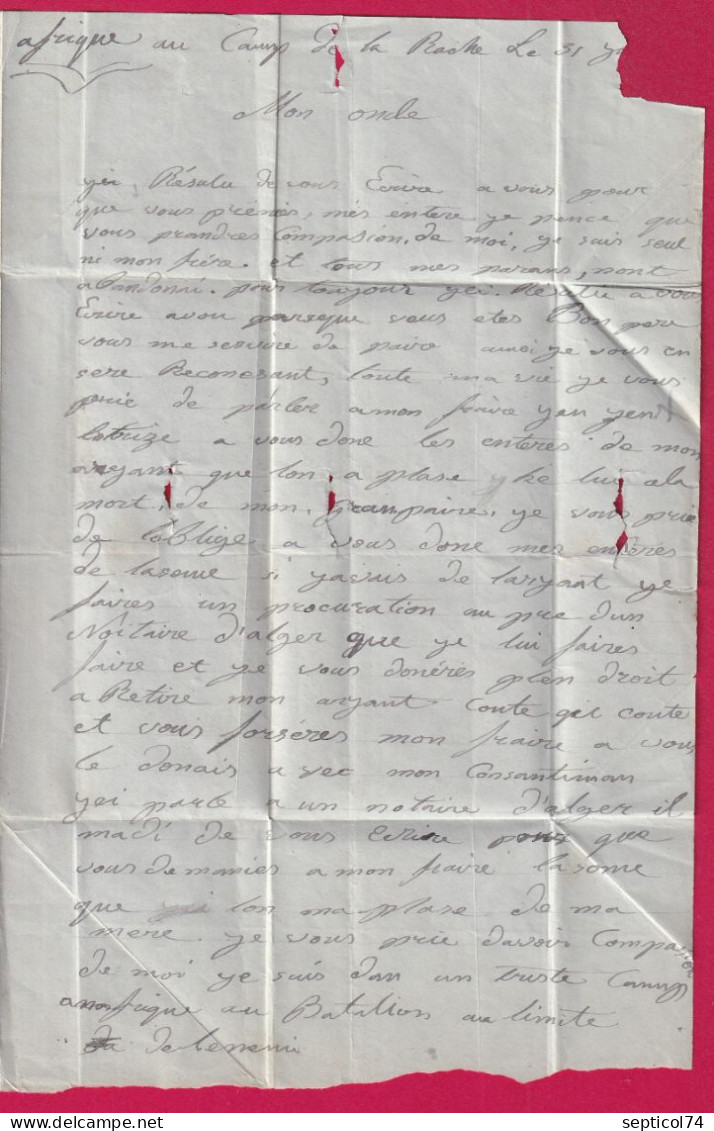 afrique au Camp de la Roche Le 31
Mon oncle
yei, Résulu de vous Ecrire a vous pour
que vous prénies, més entere ye pence que
vous prandres Compasion. de moi, ye suis seul
ni mon frére. et tous mes parans, mont
abandonni. pour toujour yei. Résulu a vous
Ecrire avou parseque vous etes Bon pere
vous me servire de paire ausi ye vous en
sere Reconesant, toute ma vie ye vous
prie de párler amon fraire yan
a vous done les enteres de mon
aryant que lon a plase ala
mort, de mon, granpaire, ye vous prie
de loblige a vous done mes enteres
de lasome si yavais de laryant ye
faires un procuration au pre dun
Nôitaire d'alger que ye lui faires
faire et ye vous donérés plen droit
a Retire mon aryant Coute qei coute
et vous forséres mon fraire a vous
le donais avec mon Consantiman
yei parle a un notaire d'alger il
madi de vous Ecrire pour que
vous demanies a mon fraire la some
que lon ma plase de ma
mere. ye vous prie davoir Compasion
de moi ye suis dan un triste Camp
anafrique au Batallion au limite